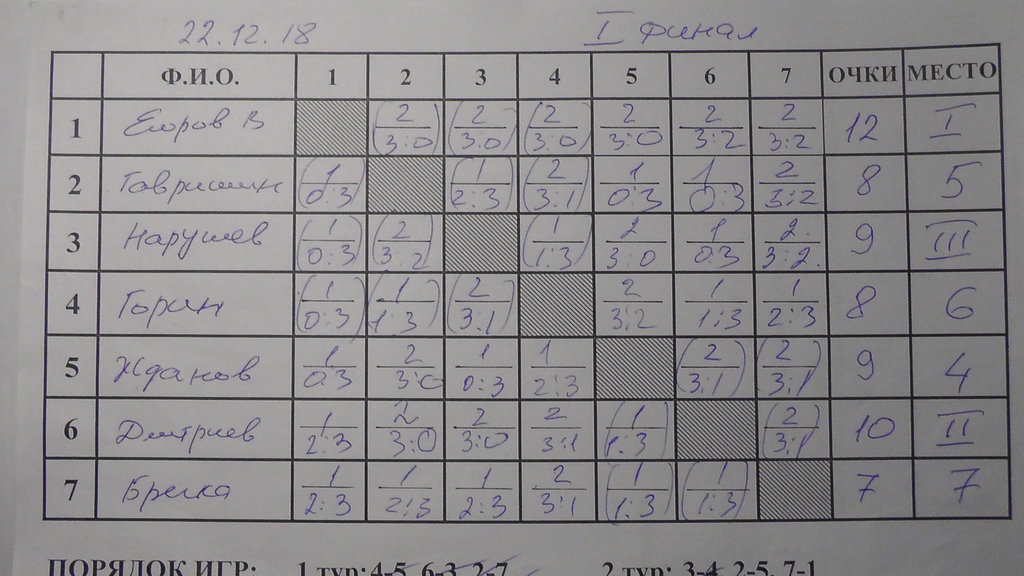 22.12.18 I финал
Ф.И.О. 1 2 3 4 5 6 7 ОЧКИ МЕСТО
1 Егоров В (2/3:0) (2/3:0) (2/3:0) 2/3:0 2/3:2 2/3:2 12 I
2 Гавришин (1/0:3) (1/2:3) (2/3:1) 1/0:3 1/0:3 2/3:2 8 5
3 Нарушев (1/0:3) (2/3:2) (1/1:3) 2/3:0 1/0:3 2/3:2 9 III
4 Горин (1/0:3) (1/1:3) (2/3:1) 2/3:2 1/1:3 1/2:3 8 6
5 Жданов 1/0:3 2/3:0 1/0:3 1/2:3 (2/3:1) (2/3:1) 9 4
6 Дмитриев 1/2:3 2/3:0 2/3:0 2/3:1 (1/1:3) (2/3:1) 10 II
7 1/2:3 1/2:3 1/2:3 2/3:1 (1/1:3) (1/1:3) 7 7
ПОРЯДОК ИГР: 1 тур: 4-5, 6-3, 2-7 2 тур: 3-4, 2-5, 7-1